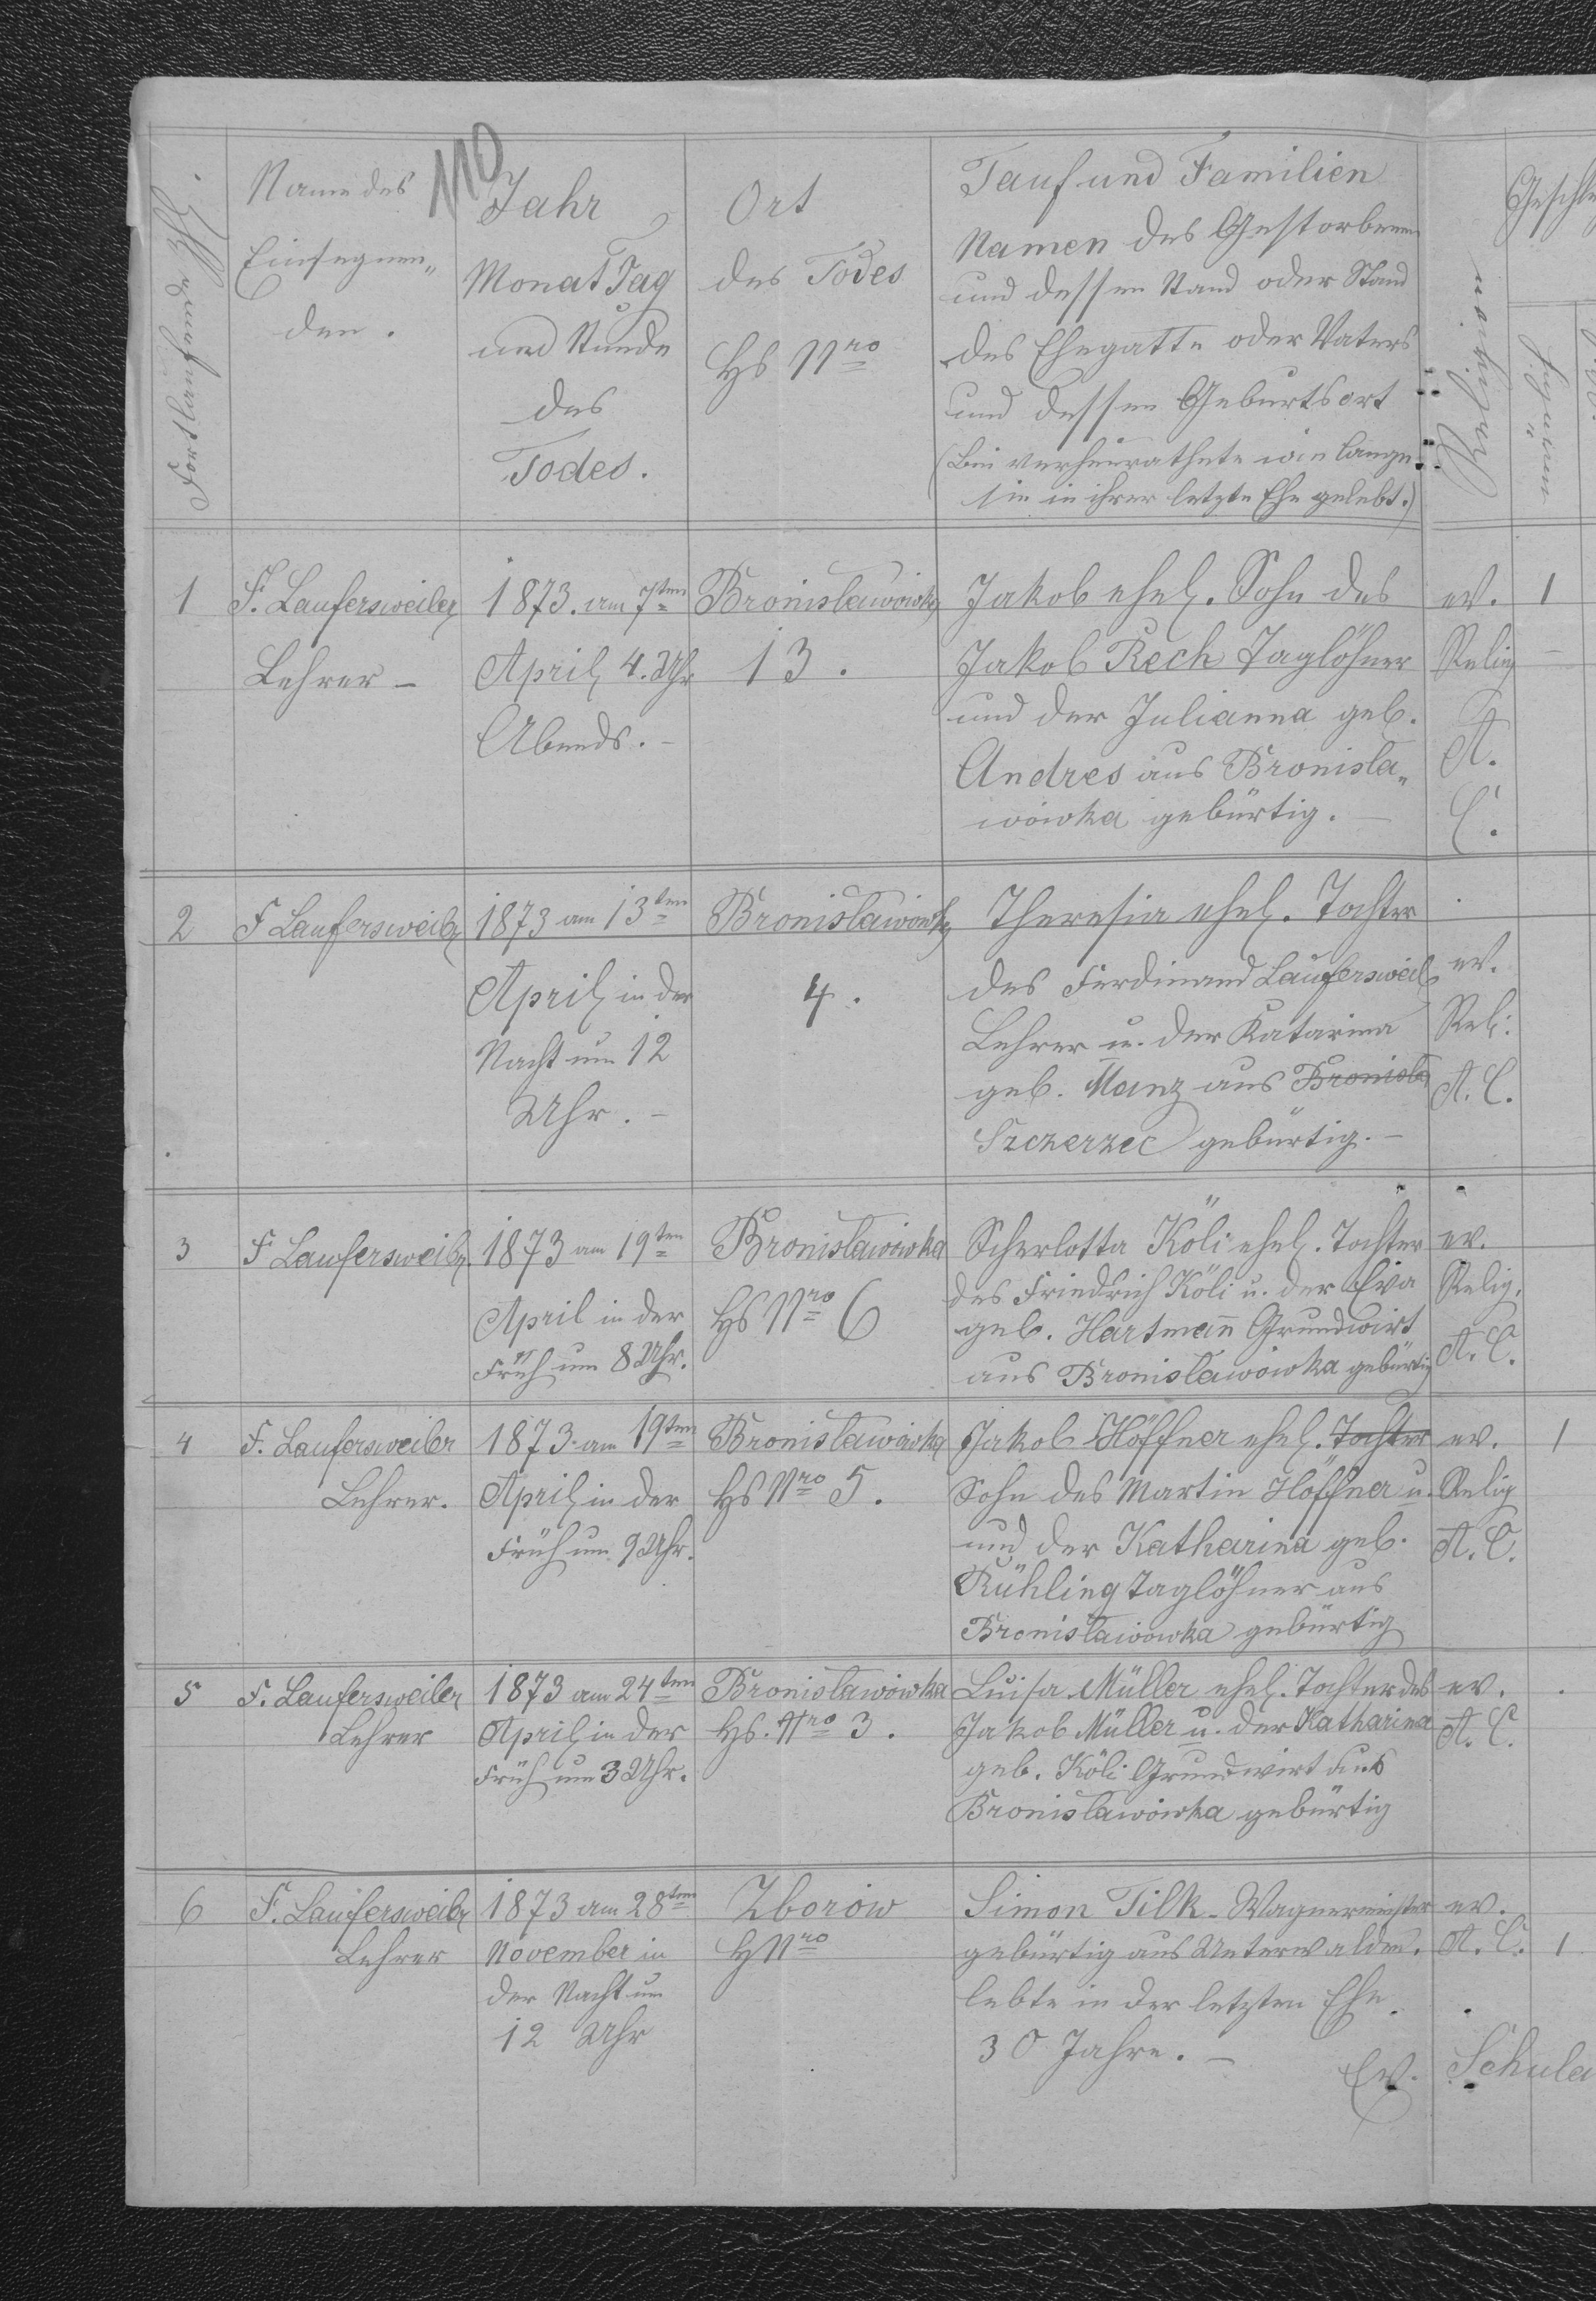 110
Fortlaufende Zhl.
Name des
Einsegnen„
den.
Jahr
Monat Tag
und Stunde
des
Todes.
Ort
des Todes
Hs Nro
Tauf und Familien
Namen des Gestorbenen
und dessen Stand oder Stand
des Ehegatte oder Vaters
und dessen Geburtsort
(bei verheirathete wie lange
sie in ihrer letzte Ehe gelebt.)
Religion
Geschle
männlich
1
F. Laufersweiler
Lehrer –
1873. am 7ten
April 4. Uhr
Abends. –
Bronislawówka
13.
Jakob ehel. Sohn des
Jakob Rech Taglöhner
und der Julianna geb.
Andres aus Bronisla„
wówka gebürtig. –
ev.
Relig
A.
C.
1
2
F Laufersweiler
1873 am 13ten
April in der
Nacht um 12
Uhr. –
Bronislawówka
4.
Theresia ehel. Tochter
des Ferdinand Laufersweil
Lehrer u. der Katarina
geb. Manz aus Bronisla
Szczerzec gebürtig. –
ev.
Rel:
A. C.
3
F Laufersweiler
1873 am 19ten
April in der
Früh um 8 Uhr.
Bronislawówka
Hs Nro 6
Scherlotta Köli ehel. Tochter
des Friedrich Köli u. der Eva
geb. Hartmann Grundwirt
aus Bronislawówka gebürtig
ev.
Relig.
A. C.
4
F. Laufersweiler
Lehrer.
1873. am 19ten
April in der
Früh um 9 Uhr.
Bronislawówka
Hs Nro 5.
Jakob Höffner ehel. Tochter
Sohn des Martin Höffner u.
und der Katharina geb.
Rühling Taglöhner aus
Bronislawówka gebürtig
ev.
Relig
A. C.
1
5
F. Laufersweiler
Lehrer
1873 am 24ten
April in der
Früh um 3 Uhr.
Bronislawówka
Hs. Nro 3.
Luisa Müller ehel. Tochter des
Jakob Müller u. der Katharina
geb. Köli Grundwirt aus
Bronislawówka gebürtig
ev.
A. C.
6
F. Laufersweiler
Lehrer
1873 am 28ten
November in
der Nacht um
12 Uhr
Zborów
H Nro
Simon Tilk. Wagnermeister
gebürtig aus Unterwalden.
lebte in der letzten Ehe
30 Jahre. –
ev.
A. C.
1
Ev. Schula